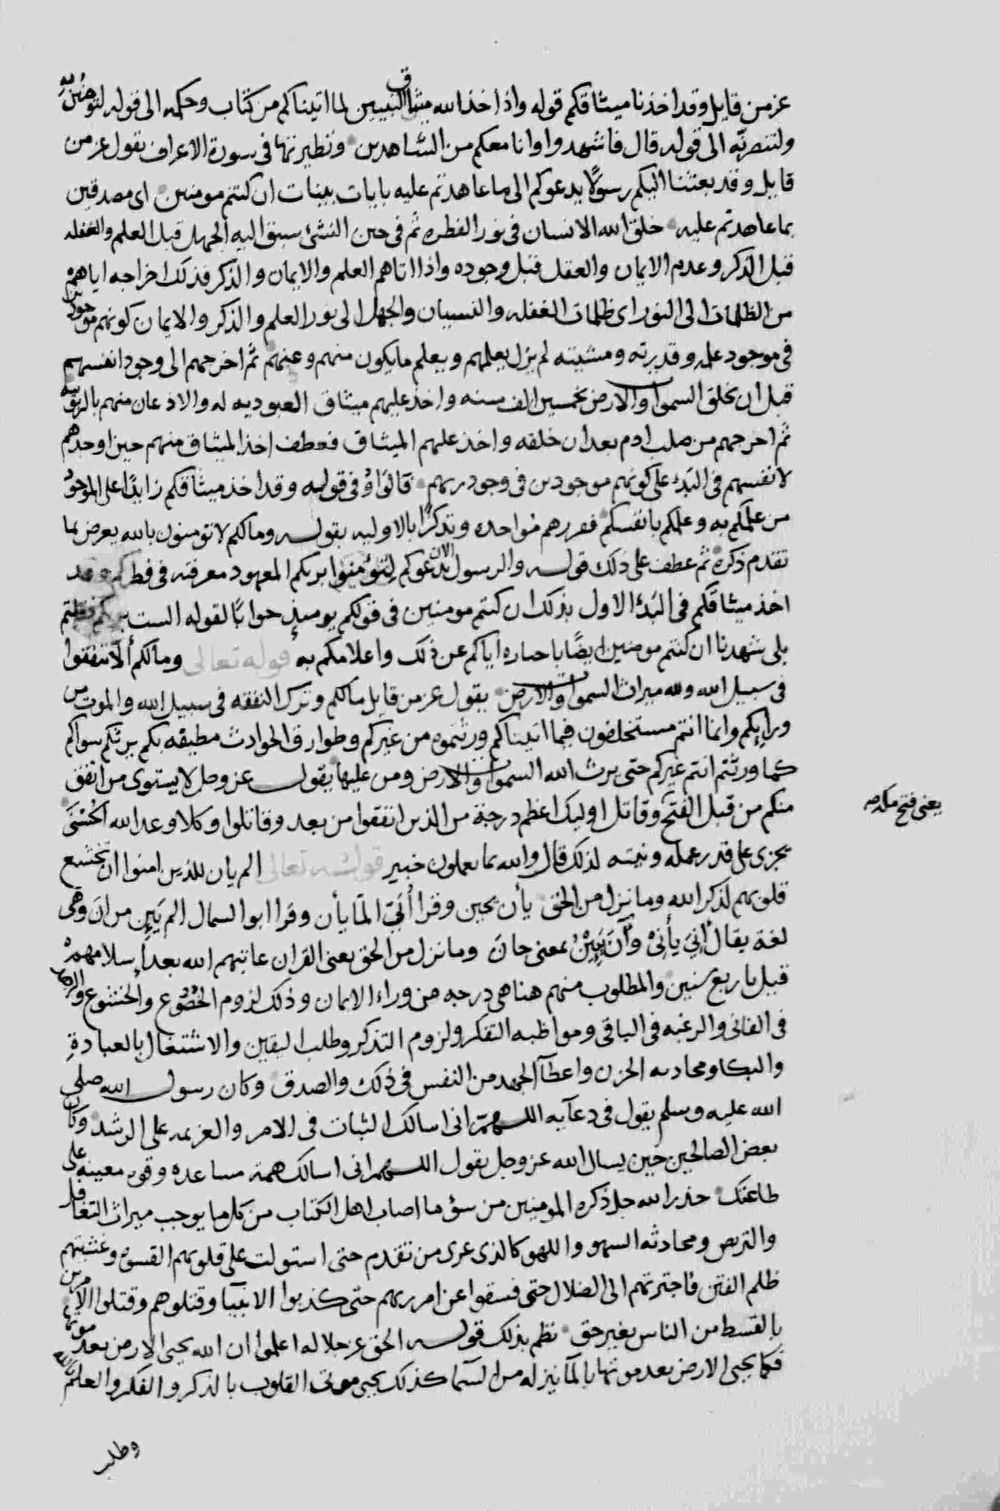 عز من قايل وقد اخذنا ميثاقكم قوله واذ اخذ الله ميثاق النبيين لما اتيناكم من كتاب وحكمه الى قوله لتومنن به
ولتنصرنه الى قوله قال فاشهدوا وانا معكم من الشاهدين ونظيرتها فى سورة الاعراف يقول عز من
قايل وقد بعثنا اليكم رسولا يدعوكم الى ما عاهدتم عليه بايات بينات ان كنتم مومنين اى مصدقين
بما عاهدتم عليه خلق الله الانسان فى نور الفطره ثم فى حين النشئ سبق اليه الجهل قبل العلم والغفله
قبل الذكر وعدم الايمان والعقل قبل وجوده واذا اتاهم العلم والايمان والذكر فذلك اخراجه اياهم
من الظلمات الى النور اى ظلمات الغفله والنسيان والجهل الى نور العلم والذكر والايمان كونهم موجودين
فى موجود علمه وقدرته ومشيته لم يزل يعلمهم ويعلم ما يكون منهم وعنهم ثم اخرجهم الى وجود انفسهم
قبل ان يخلق السموات والارض بخمسين الف سنه واخذ عليهم ميثاق العبوديه له والاذعان منهم بالربوبيه
ثم اخرجهم من صلب ادم بعد ان خلقه واخذ عليهم الميثاق فعطف اخذ الميثاق منهم حين اوجدهم
لانفسهم فى البدء على كونهم موجودين فى وجود ربهم قالوا وفى قوله وقد اخذ ميثاقكم زايدا على الموجود
من علمكم به وعلمكم بانفسكم فقررهم مواحده وتذكرا بالاوليه بقوله وما لكم لا تومنون بالله يعرض بما
تقدم ذكره ثم عطف على ذلك قوله والرسول يدعوكم لتؤمنوا بربكم المعهود معرفته فى فطركم وقد
اخذ ميثاقكم فى البدء الاول بذلك ان كنتم مومنين فى قولكم يوميذ جوابا لقوله الست بربكم فقلتم
بلى شهدنا ان كنتم مومنين ايضا باخباره اياكم عن ذلك واعلامكم به قوله تعالى وما لكم ألا تنفقوا
فى سبيل الله ولله ميراث السموات والارض يقول عز من قايل ما لكم وترك النفقه فى سبيل الله والموت من
ورايكم وانما انتم مستخلفون فيما اتيناكم ورثتموه من غيركم وطوارق الحوادث مطيفه بكم يرثكم سواكم
كما ورثتم انتم غيركم حتى يرث الله السموات والارض ومن عليها يقول عز وجل لا يستوى من انفق
منكم من قبل الفتح وقاتل اوليك اعظم درجة من الذين انفقوا من بعد وقاتلوا وكلا وعد الله الحسنى
يعنى فتح مكه
يجزى على قدر عمله ونيته لذلك قال والله بما يعملون خبير قوله تعالى الم يان للذين امنوا ان تخشع
قلوبهم لذكر الله وما نزل من الحق يأن يحين وقرا أبَىّ المّا يأن وقرا ابو السمال الم يَئِن من ان وهى
لغة يقال أنى يأنى وآن يَئِين بمعنى حان وما نزل من الحق يعنى القران عاتبهم الله بعد إسلامهم
قبل باربع سنين والمطلوب منهم هنا هى درجه من وراء الايمان وذلك لزوم الخضوع والخشوع والزهد
فى الفانى والرغبه فى الباقى ومواظبه التفكر ولزوم التذكر وطلب اليقين والاشتغال بالعبادة
والبكا ومحادثه الحزن واعطآ الجهد من النفس فى ذلك والصدق وكان رسول الله صلى
الله عليه وسلم يقول فى دعآيه اللهم انى اسالك الثبات فى الامر والعزيمه على الرشد وكان
بعض الصالحين حين يسال الله عز وجل يقول اللهم انى اسالك همة مساعده وقوى معينه على
طاعتك حذر الله جل ذكره المومنين من سؤ ما اصاب اهل الكتاب من كل ما يوجب ميراث التغافل
والتربص ومحادثه السهو واللهو كالذى عرى من تقدم حتى استولت على قلوبهم القسوه وغشيتهم
ظلم الفتن فاجترتهم الى الضلال حتى فسقوا عن امر ربهم حتى كذبوا الانبيا وقتلوهم وقتلوا الامرين
بالقسط من الناس بغير حق نظم بذلك قوله الحق عز جلاله اعلموا ان الله يحيى الارض بعد موتها
فكما يحيى الارض بعد موتها بالمآ ينزله من السمآ كذلك يحيى موتى القلوب بالذكر والفكر والعلم بالله
وطلب